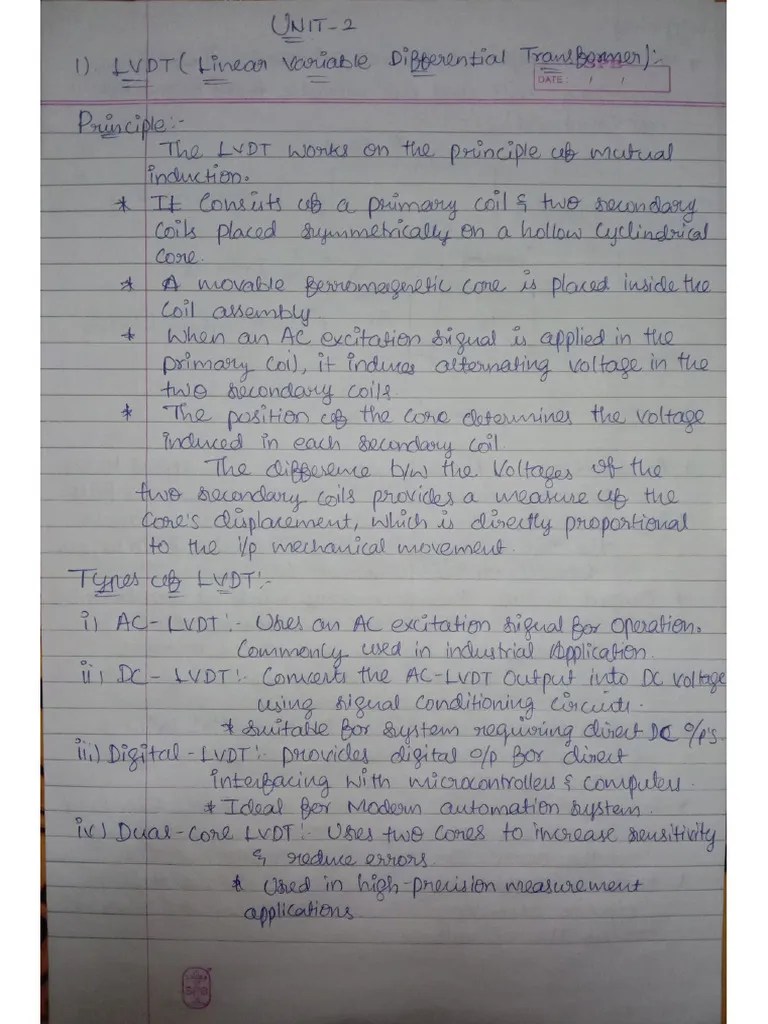 UNIT-2
1) LVDT (Linear Variable Differential Transformer):-
DATE: / /
Principle:-
The LVDT works on the principle of mutual
induction.
* It Consists of a primary coil & two secondary
coils placed symmetrically on a hollow Cyclindrical
core.
* A movable ferromagnetic core is placed inside the
coil assembly
* When an AC excitation signal is applied in the
primary coil, it induces alternating voltage in the
two secondary coils.
* The position of the core determines the voltage
induced in each secondary coil.
The difference b/w the Voltages of the
two secondary coils provides a measure of the
core's displacement, which is directly proportional
to the i/p mechanical movement.
Types of LVDT:-
i) AC-LVDT:- Uses an AC excitation signal for operation.
Commenly used in industrial Application.
ii) DC-LVDT:- Converts the AC-LVDT output into DC voltage
using signal conditioning circuits.
* Suitable for system requring direct DC o/p's.
iii) Digital-LVDT:- provides digital o/p for direct
interfacing with microcontrollers & computers.
* Ideal for Modern automation system.
iv) Dual-Core LVDT:- Uses two cores to increase sensitivity
& reduce errors.
* Used in high-precision measurement
applications.